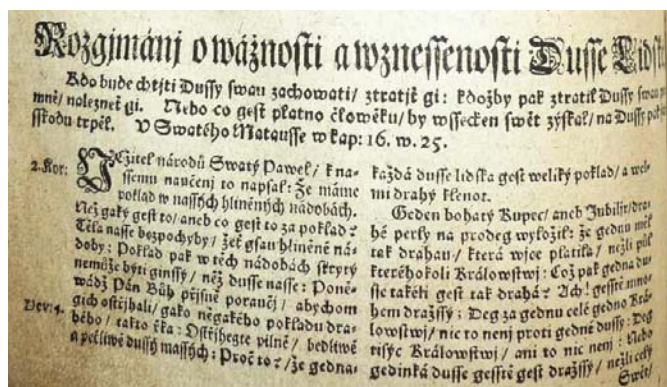 Rozgjmánj o wážnosti a wznessenosti Dusse Lidsk
Kdo bude chtjti Dussy swau zachowati/ ztratjť gi: kdožby pak ztratil Dussy swau
mně/ nalezneť gi. Nebo co gest platno člowěku/ by wssecken swět zýskal/ na Dussy pak
sskodu trpěl. V Swatého Matausse w kap: 16. w. 25.
2. Kor:
VČitel národů Swatý Pawel/ k na-
ssemu naučenj to napsal: Že máme
poklad w nassých hliněných nádobách.
Než gaký gest to/ aneb co gest to za poklad?
Těla nasse bezpochyby/ žeť gsau hliněné ná-
doby: Poklad pak w těch nádobách skrytý
nemůže býti ginssý/ než dusse nasse: Poně-
wádž Pán Bůh přjsně poraučj/ abychom
gich ostřjhali/ gako něgakého pokladu dra-
hého/ takto řka: Ostřjhegte pilně/ bedliwě
Dev: 4.
a pečliwě dussý wassých: Proč to?/ že gedna-
každá dusse lidska gest weliký poklad/ a wel-
mi drahý klenot.
Geden bohatý Kupec/ aneb Jubiljř/ dra-
hé perly na prodeg wyložil: že gednu měl
tak drahau/ která wjce platila/ nežli půl
kteréhokoli Králowstwj: Což pak gedna du-
sse takéli gest tak drahá? Ach! gesstě mno-
hem dražssý: Deg za gednu celé gedno Krá-
lowstwj/ nic to nenj proti gedné dussy: Deg
tisýc Králowstwj/ ani to nic nenj: Nebo
gedinká dusse gesstě gest dražssý/ nežli celý
Swět/